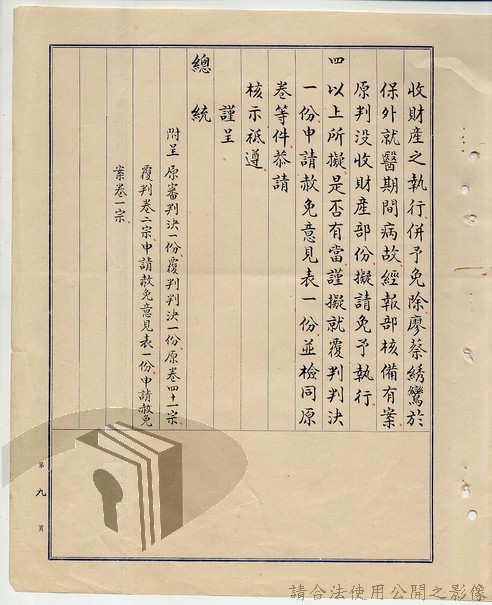 收財產之執行,併予免除,廖蔡綉鸞於
保外就醫期間病故經報部核備有案,
原判没收財產部份擬請免予執行,
四以上所擬是否有當謹擬就覆判判決
一份,申請赦免意見表一份,並檢同原
卷等件恭請
核示祗遵
謹呈
總統
附呈 原審判決一份,覆判判決一份,原卷四十一宗,
覆判卷二宗,申請赦免意見表一份,申請赦免
案卷一宗
第九頁
請合法使用公開之影像